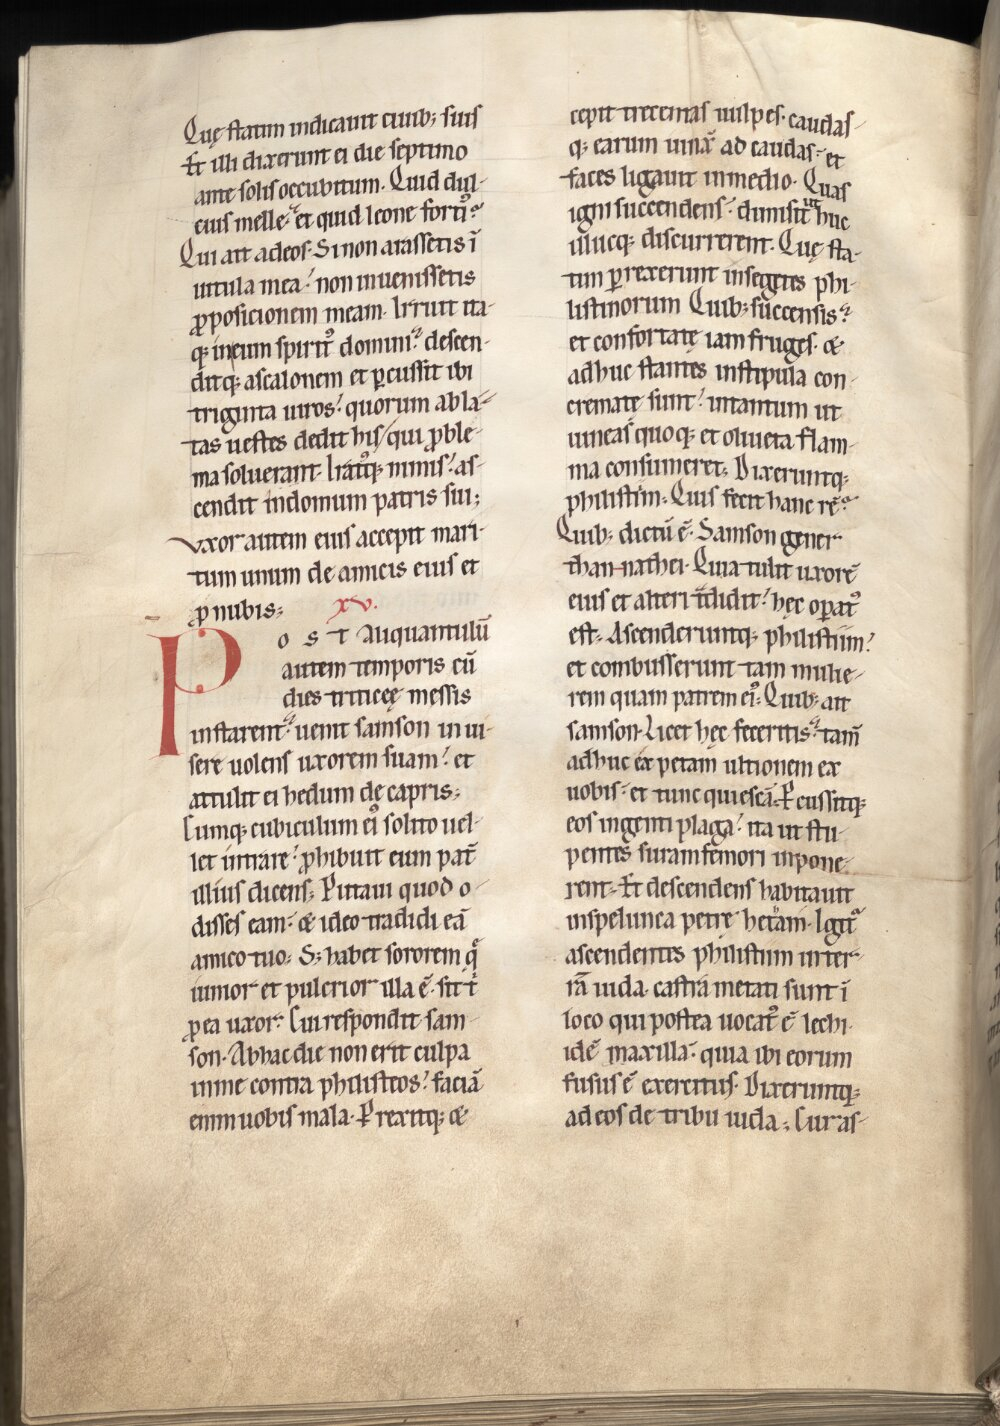 Quę statim indicauit ciuib; suis
Et illi dixerunt ei die septimo
ante solis occubitum. Quid dul-
cius melle? et quid leone forti᷒?
Qui ait ad eos. Si non arassetis ī
uitula mea: non inuenissetis
ꝓposicionem meam. Irruit ita-
qꝫ in eum spirit᷒ domini? descen-
ditqꝫ ascalonem et ꝑcussit ibi
triginta uiros: quorum abla-
tas uestes dedit his/ qui ꝓble-
ma soluerant. Irat᷒qꝫ nimis: as-
cendit in domum patris sui;
Vxor autem eius accepit mari-
tum unum de amicis eius et
ꝓnubis; xv.
Post aliquantulū
autem temporis cū
dies triticeę messis
instarent: uenit samson in ui-
sere uolens uxorem suam: et
attulit ei hedum de capris;
Cumqꝫ cubiculum ei᷒ solito uel-
let intrare: ꝓhibuit eum pat̄
illius dicens; Putaui quod o-
disses eam: & ideo tradidi eā
amico tuo; S; habet sororem q̄
iunior et pulcrior illa ē. sit t̄
ꝓ ea uxor. Cui respondit sam-
son. Ab hac die non erit culpa
in me contra philisteos: faciā
enim uobis mala. Ꝑrexitqꝫ &
cepit trecentas uulpes. caudas-
qꝫ earum iunx̄ ad caudas: et
faces ligauit in medio. Quas
igni succendens: dimisit ut huc
illucqꝫ discurrerent. Quę sta-
tim ꝑrexerunt in segetes phi-
listinorum Quib; succensis?
et confortatę iam fruges. &
adhuc stantes in stipula con-
crematę sunt: intantum ut
uineas quoqꝫ et oliueta flam-
ma consumeret; Dixeruntqꝫ
philistim; Quis fecit hanc rē?
Quib; dictū ē. Samson gener
thannathei. Quia tulit uxorē
eius et alteri t̄didit: hęc oꝑat᷒
est; Ascenderuntqꝫ philistiim:
et combusserunt tam mulie-
rem quam patrem ei᷒; Quib; ait
samson. Licet hęc feceritis: tam̄
adhuc expetam ultionem ex
uobis: et tunc quiescā; Ꝑcussitqꝫ
eos ingenti plaga: ita ut stu-
pentes suram femori inpone-
rent. Et descendens habitauit
in spelunca petrę hetam. Igit᷒
ascendentes philistiim in ter-
rā iuda. castra metati sunt ī
loco qui postea uocat᷒ ē lechi.
idē maxilla. quia ibi eorum
fusus ē exercitus. Dixeruntqꝫ
ad eos de tribu iuda; Cur as-